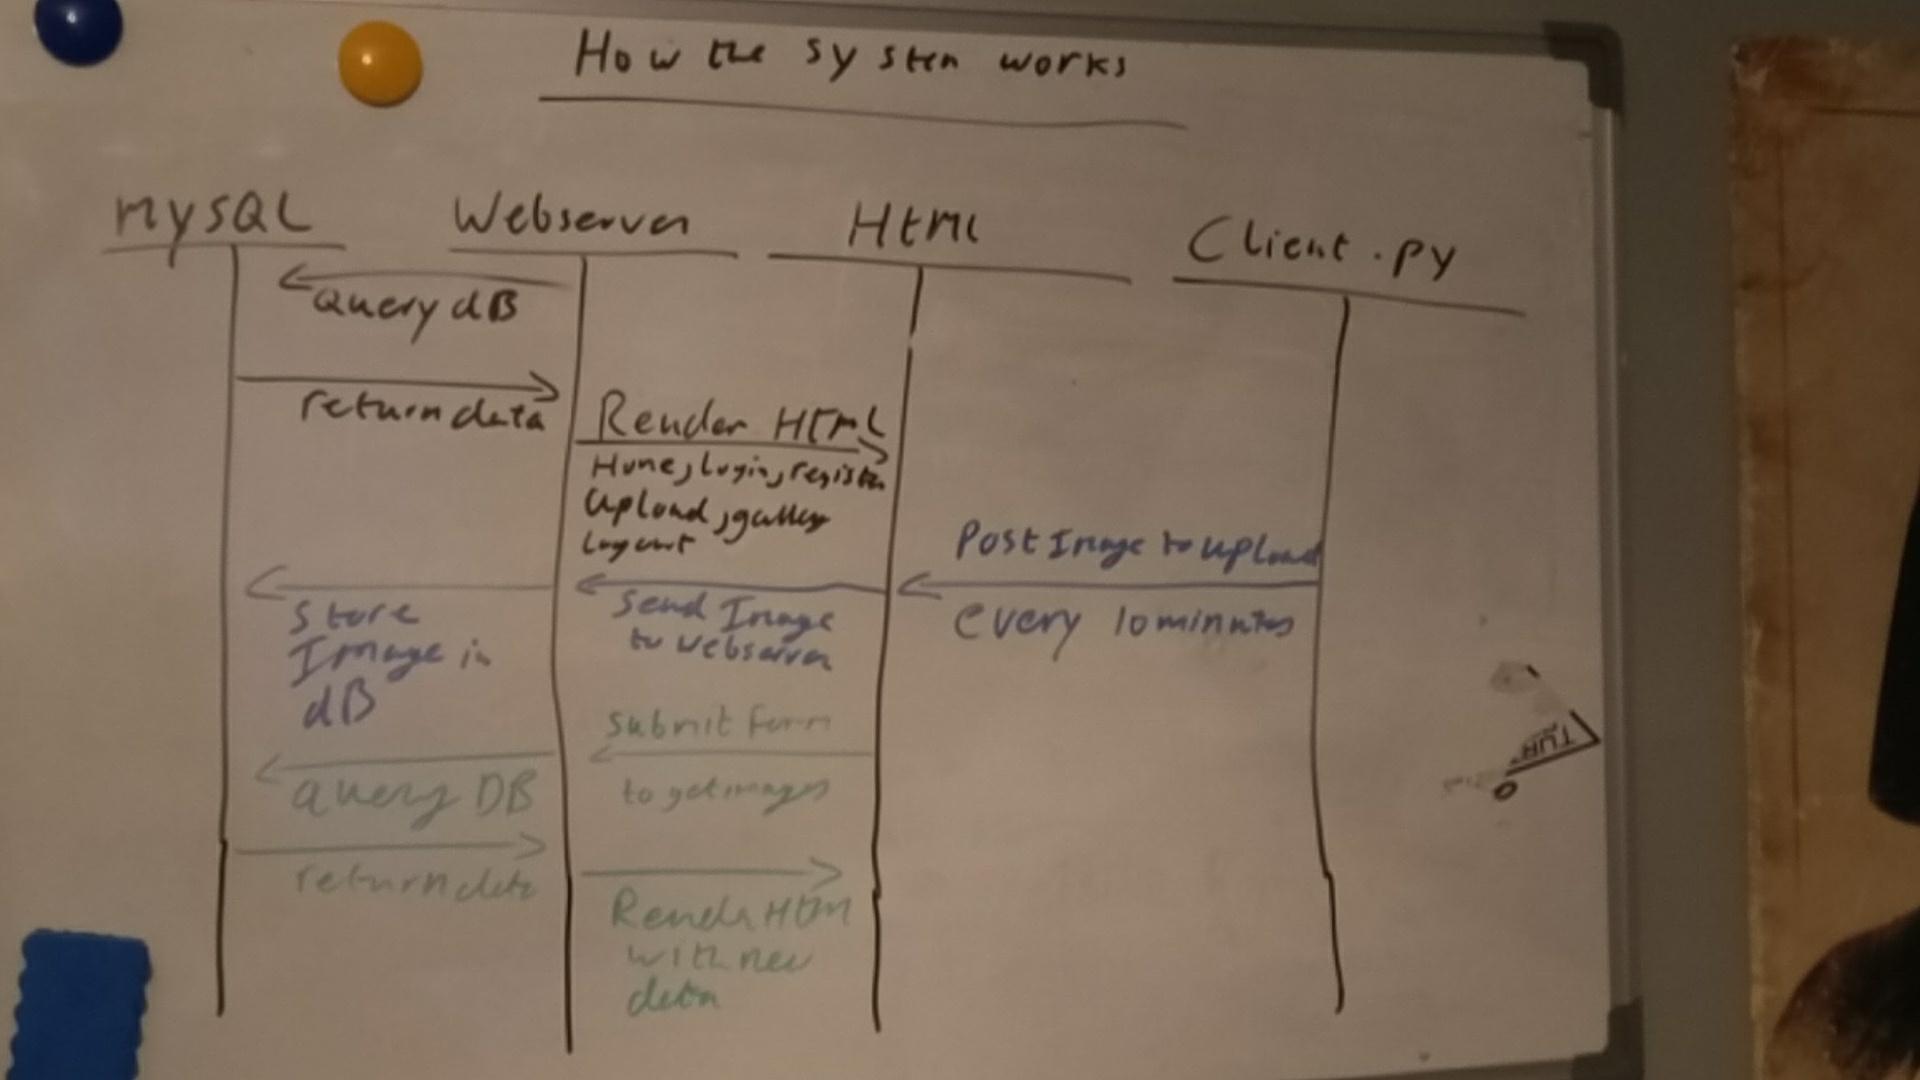 How the system works
MySQL
Webserver
Html
Client.py
Query dB
return data
Render Html
Home, Login, register
Upload, gallery
Logout
Post Image to upload
every 10 minutes
Send Image
to webserver
Store
Image in
dB
Submit form
to get images
Query DB
return data
Render Html
with new
data